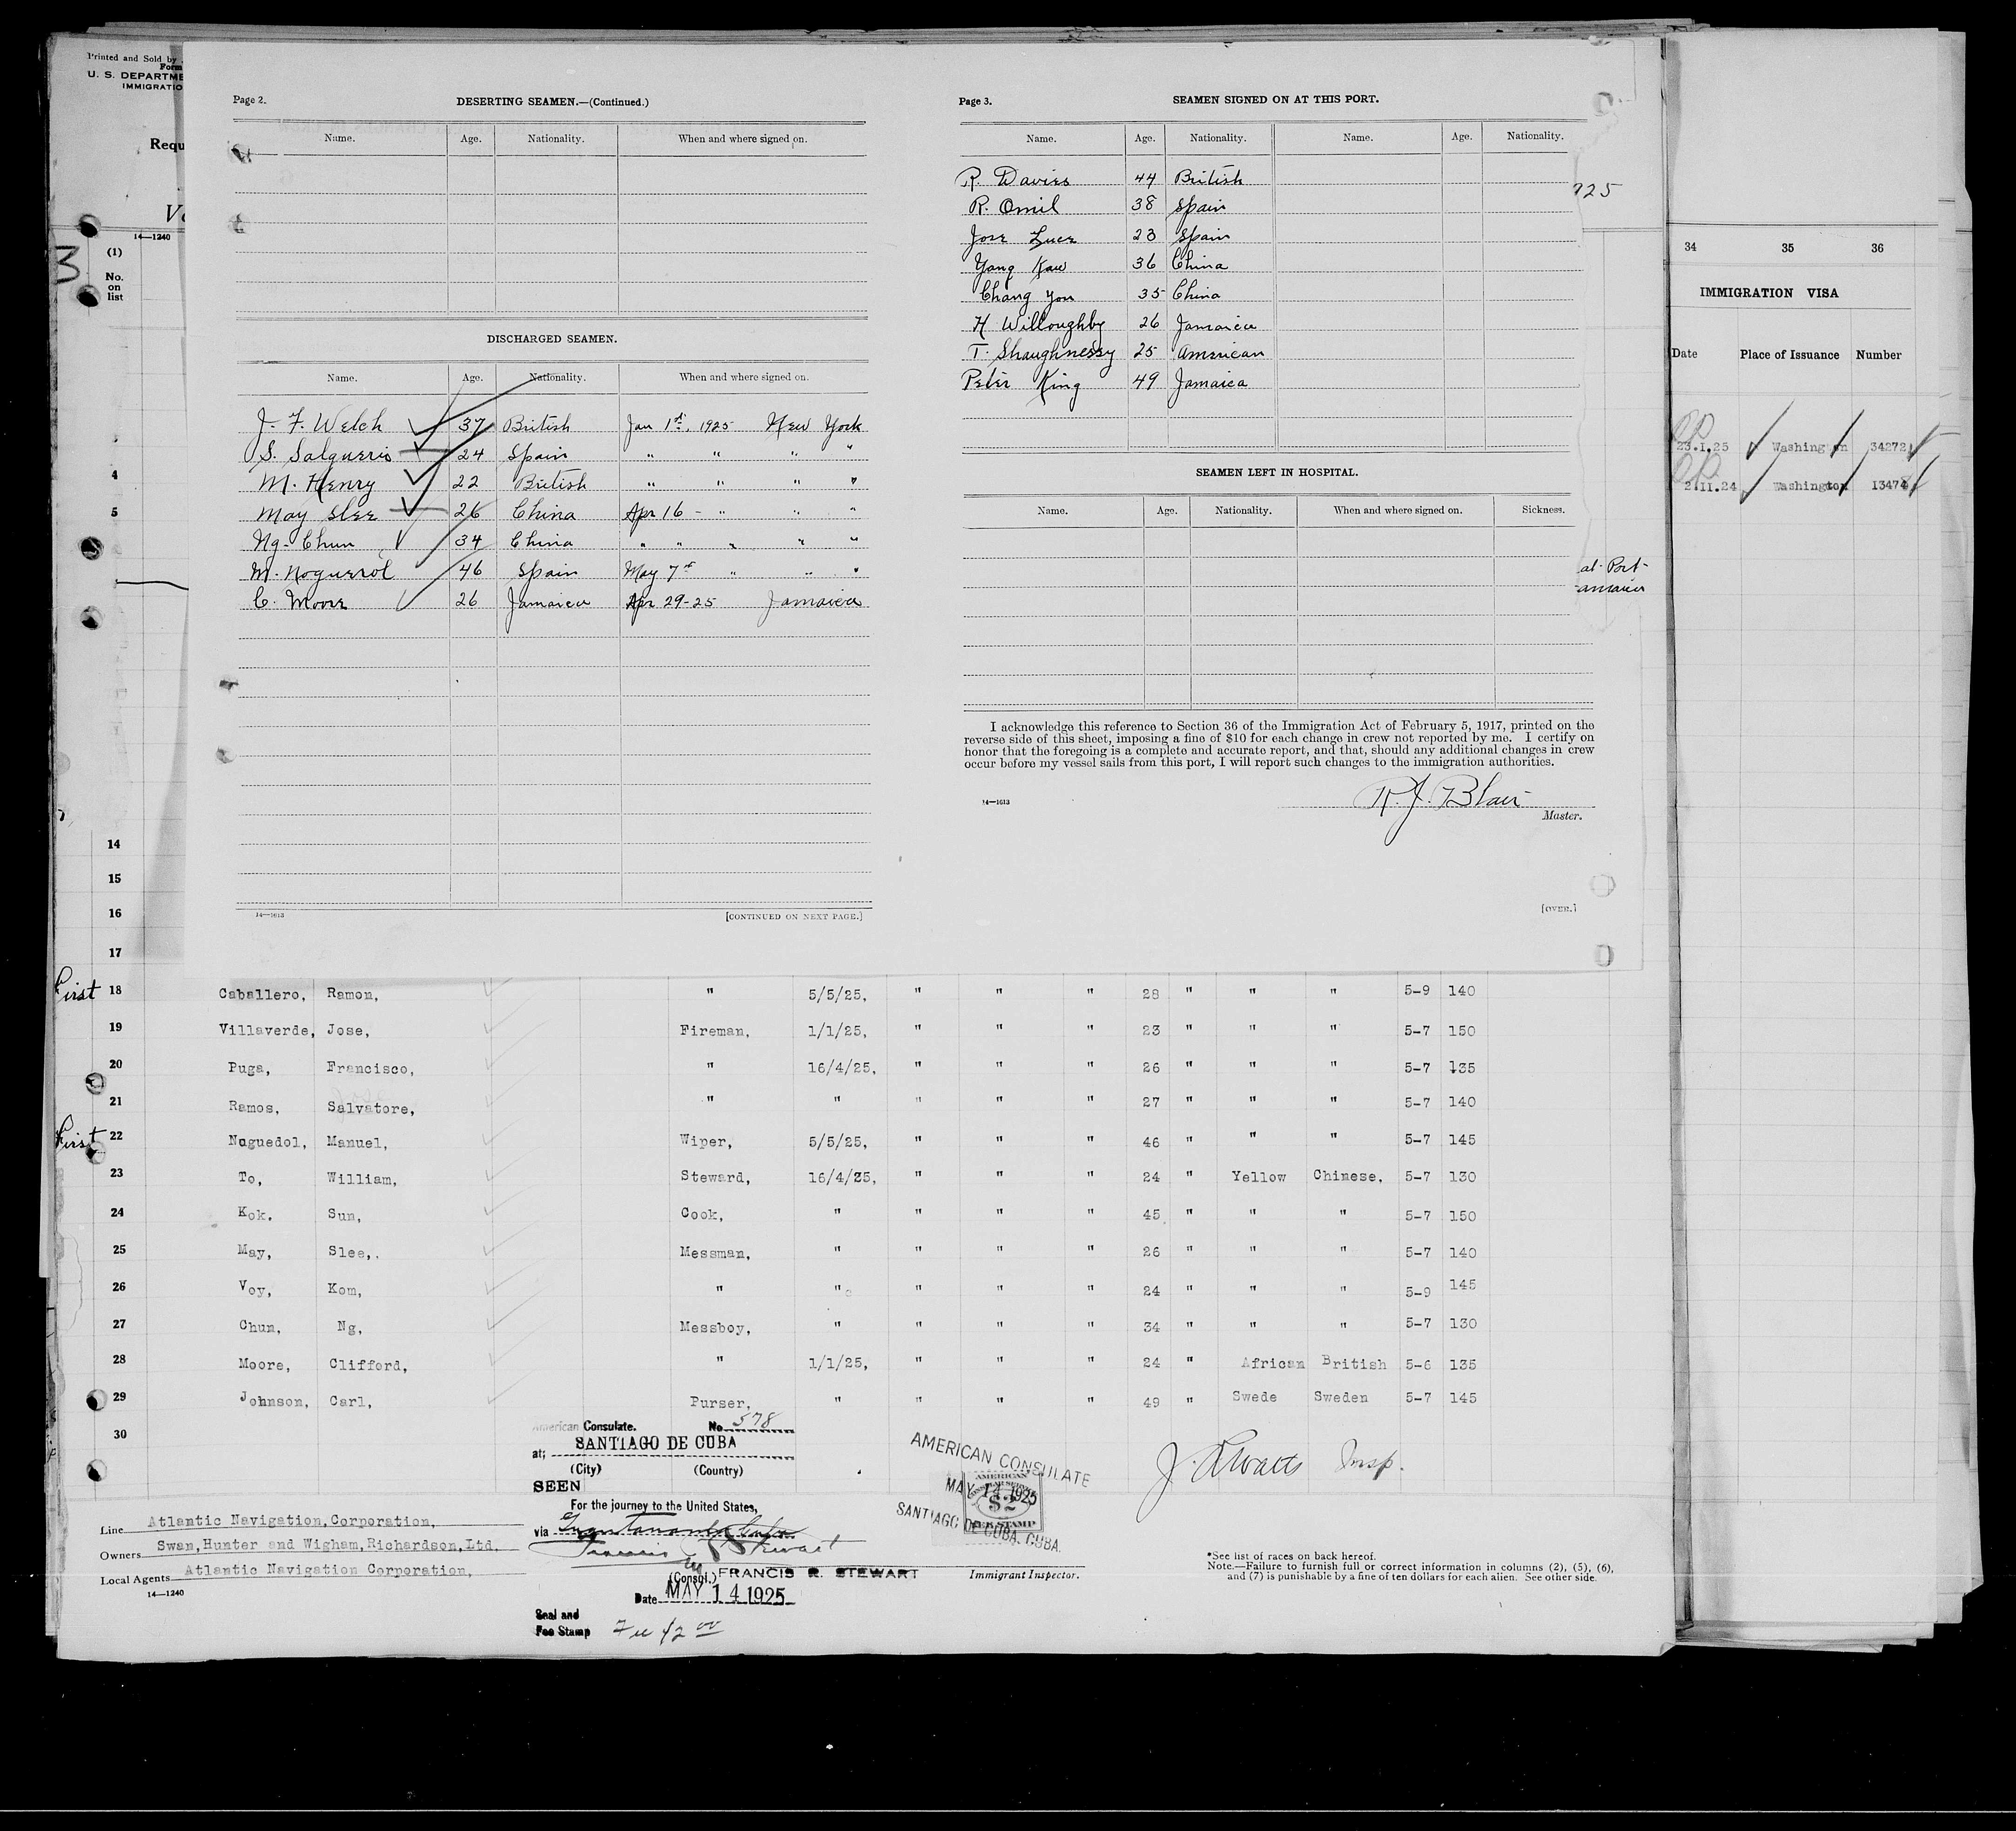 Printed and Sold by
Form
U. S. DEPARTME
IMMIGRATIO
Requ
14—1240
(1)
No.
on
list
3
4
5
14
15
16
17
Page 2.
DESERTING SEAMEN.—(Continued.)
Name. Age. Nationality. When and where signed on.
DISCHARGED SEAMEN.
Name. Age. Nationality. When and where signed on.
J. F. Welch 37 British Jan 1st, 1925 New York
S. Salgueris 24 Spain " " " "
M. Henry 22 British " " " "
May Slee 26 China Apr 16 - " " "
Ng. Chun 34 China " " " " "
M. Noguerol 46 Spain May 7th " " "
C. Moore 26 Jamaica Apr 29-25 Jamaica
14—1613
[CONTINUED ON NEXT PAGE.]
Page 3.
SEAMEN SIGNED ON AT THIS PORT.
Name. Age. Nationality. Name. Age. Nationality.
R. Davies 44 British
R. Omil 38 Spain
Jose Luce 23 Spain
Yang Kaw 36 China
Chang You 35 China
H Willoughby 26 Jamaica
T. Shaughnessy 25 American
Peter King 49 Jamaica
SEAMEN LEFT IN HOSPITAL.
Name. Age. Nationality. When and where signed on. Sickness.
I acknowledge this reference to Section 36 of the Immigration Act of February 5, 1917, printed on the
reverse side of this sheet, imposing a fine of $10 for each change in crew not reported by me. I certify on
honor that the foregoing is a complete and accurate report, and that, should any additional changes in crew
occur before my vessel sails from this port, I will report such changes to the immigration authorities.
14—1613
R. J. Blair
Master.
[OVER.]
925
at Port
amaica
34 35 36
IMMIGRATION VISA
Date Place of Issuance Number
23.I.25 Washington 34272
2.II.24 Washington 13474
First 18 Caballero, Ramon, " 5/5/25, " " " 28 " " " 5-9 140
19 Villaverde, Jose, Fireman, 1/1/25, " " " 23 " " " 5-7 150
20 Puga, Francisco, " 16/4/25, " " " 26 " " " 5-7 135
21 Ramos, Salvatore, " " " " " 27 " " " 5-7 140
First 22 Naguedol, Manuel, Wiper, 5/5/25, " " " 46 " " " 5-7 145
23 To, William, Steward, 16/4/25, " " " 24 " Yellow Chinese, 5-7 130
24 Kok, Sun, Cook, " " " " 45 " " " 5-7 150
25 May, Slee, Messman, " " " " 26 " " " 5-7 140
26 Voy, Kom, " " " " " 24 " " " 5-9 145
27 Chun, Ng, Messboy, " " " " 34 " " " 5-7 130
28 Moore, Clifford, " 1/1/25, " " " 24 " African British 5-6 135
29 Johnson, Carl, Purser, " " " " 49 " Swede Sweden 5-7 145
30
American Consulate. No. 578
at; SANTIAGO DE CUBA
(City) (Country)
SEEN
For the journey to the United States,
via Guantanamo Cuba
Francis R Stewart
(Consul.) FRANCIS R. STEWART
Date MAY 14 1925
Seal and
Fee Stamp Fee $2 00
AMERICAN CONSULATE
MAY 14 1925
SANTIAGO DE CUBA, CUBA.
AMERICAN
CONSULAR SERVICE
$2
FEE STAMP
J. A Watts Insp.
Immigrant Inspector.
Line Atlantic Navigation, Corporation,
Owners Swan, Hunter and Wigham, Richardson, Ltd.
Local Agents Atlantic Navigation Corporation,
14—1240
*See list of races on back hereof.
Note.—Failure to furnish full or correct information in columns (2), (5), (6),
and (7) is punishable by a fine of ten dollars for each alien. See other side.